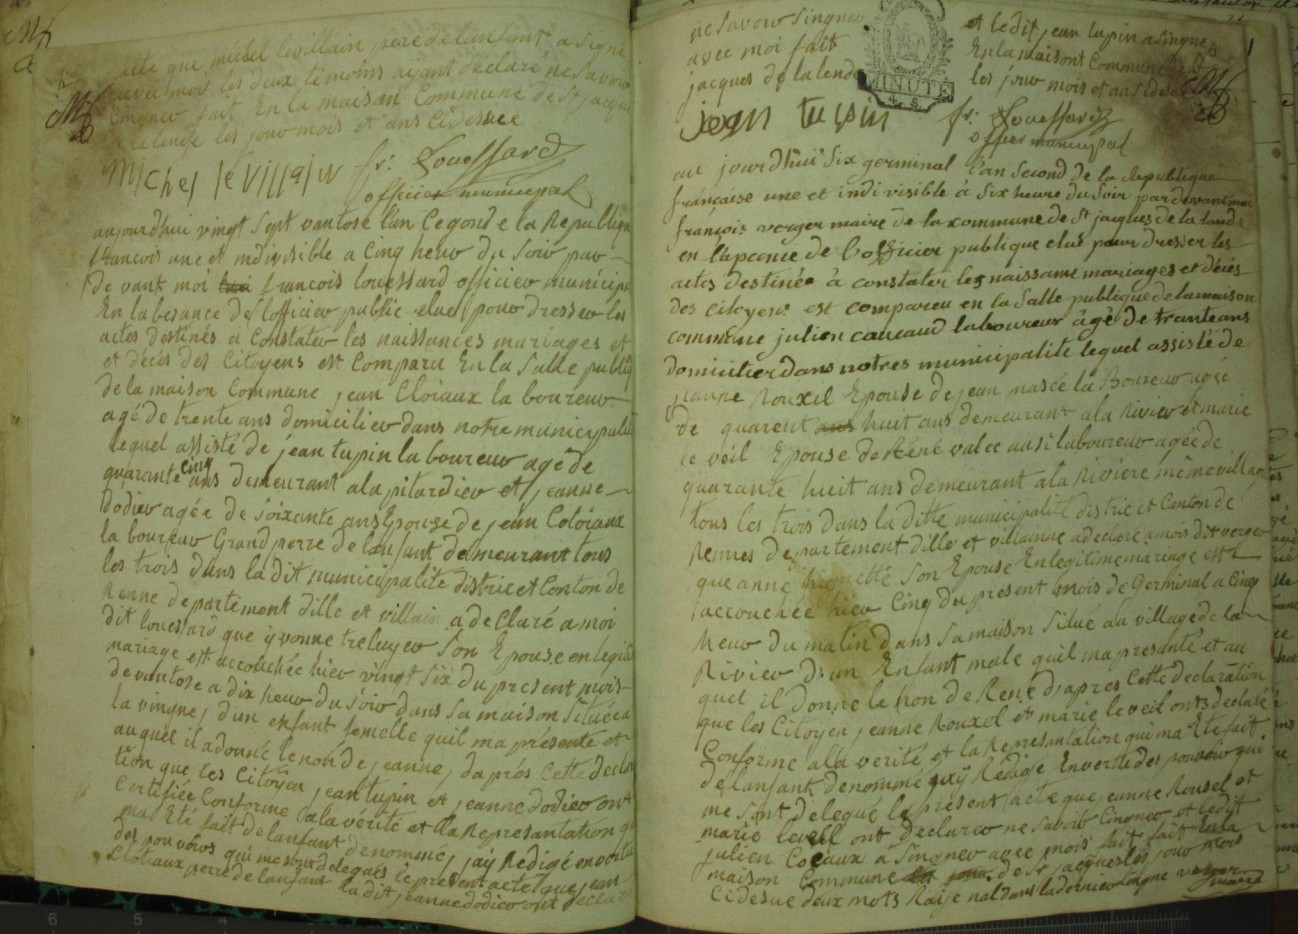 acte que michel levillain perre de lanfant a signe
avec moi les deux temoins ayant declaré ne savoir
singner fait En la maison Commune de St jacque
de la lende les jour mois et ans cidessue
Michel le Villain fr: Louessard
officier municipal
aujourdhui vingt sept vantose lan Cegond e la Republiq
francois une et indivisible a Cinq heur du Soir par
de vant moi francois louessard officier municip
En labcance de lofficier public elue pour dresser les
actes destinés a Constater les naissances mariages et
et déces des Citoyens est Comparu En la Salle publiq
de la maison Commune jean Cloriaux la boureur
agé de trente ans domicilier dans notre municipalit
lequel assisté de jean tupin la boureur agé de
quarante cinq ans demeurant a la pilardier et jeanne
dodier agée de soixante ans Epouse de jean Coloriaux
la boureur Grand perre de lanfant demeurant tous
les trois dans la dit municipalité district et Conton de
Renne departement dille et villain a declaré a moi
dit louessard que yvonne treluyer Son Epouse en legiti
mariage est accouchée hier vingt six du present mois
de vantose a dix heur du soir dans sa maison Située a
la vingne, d'un enfant femelle quil ma presenté et
auquel il a donné le non de jeanne, daprés Cette declara
tion que les Citoyen jean tupin et jeanne dodier ont
Certifiée Conforme a la verité et la Representation q
ma Eté fait de lanfant denommé, jaÿ Redigé en vertu
des pouvoirs qui me sont delegués le present acte que jean
Cloriaux perre de lanfant la dit jeanne dodier ont declaré
ne Savoir Singner et ledit jean tupin a Singne
avec moi fait En la maison Commune
jacques de la lende les jour mois et ans
MINUTE
jean tupin fr: Louessard
officier municipal
au jourdhui Six germinal l'an Second de la Republique
française une et indivisible à Six heure du Soir par devant moi
françois verger maire de la commune de St jaques de la lande
en l'apcence de l'officier publique elue pour dresser les
actes destinée à constater les naissance mariages et décés
des citoyens est comparceu en la Salle publique de la maison
commune julien caucaud laboureur âgé de trante ans
domicilier dans notres municipalité lequel assisté de
jeanne Rouxel Epouse de jean mascé la Boureur agée
de quarent ans huit ans demeurant a la Rivier et marie
le veil Epouse de René valee aussi laboureur agée de
quarante huit ans demeurant a la Riviere même village
tous les trois dans la ditte municipalité district et Canton de
Rennes departement dille et villanne a declaré a mois dit verger
que anne Son Epouse En legitime mariage est
accouchée hier Cinq du present mois de Germinal a Cinq
heur du matin dans sa maison Situé au village de la
Rivier d'un Enfant male quil ma presanté et au
quel il donne le non de René d'apres Cette declaration
que les Citoyen jeanne Rouxel et marie leveil onts declaré
Conforme a la verité et la Representation qui ma Eté fait
de lanfant denommé jayÿ Redigé En vertu des pouvoir qui
me sont delegué le present acte que jeanne Rousel et
marie leveil ont declaree ne savoir Cingner et ledit
julien Cocaux a Singner avec mois fait En la
maison Commune de St jacques les jour mois
Cidesue deux mots Raije nul dans la dernier laigne verger
maire